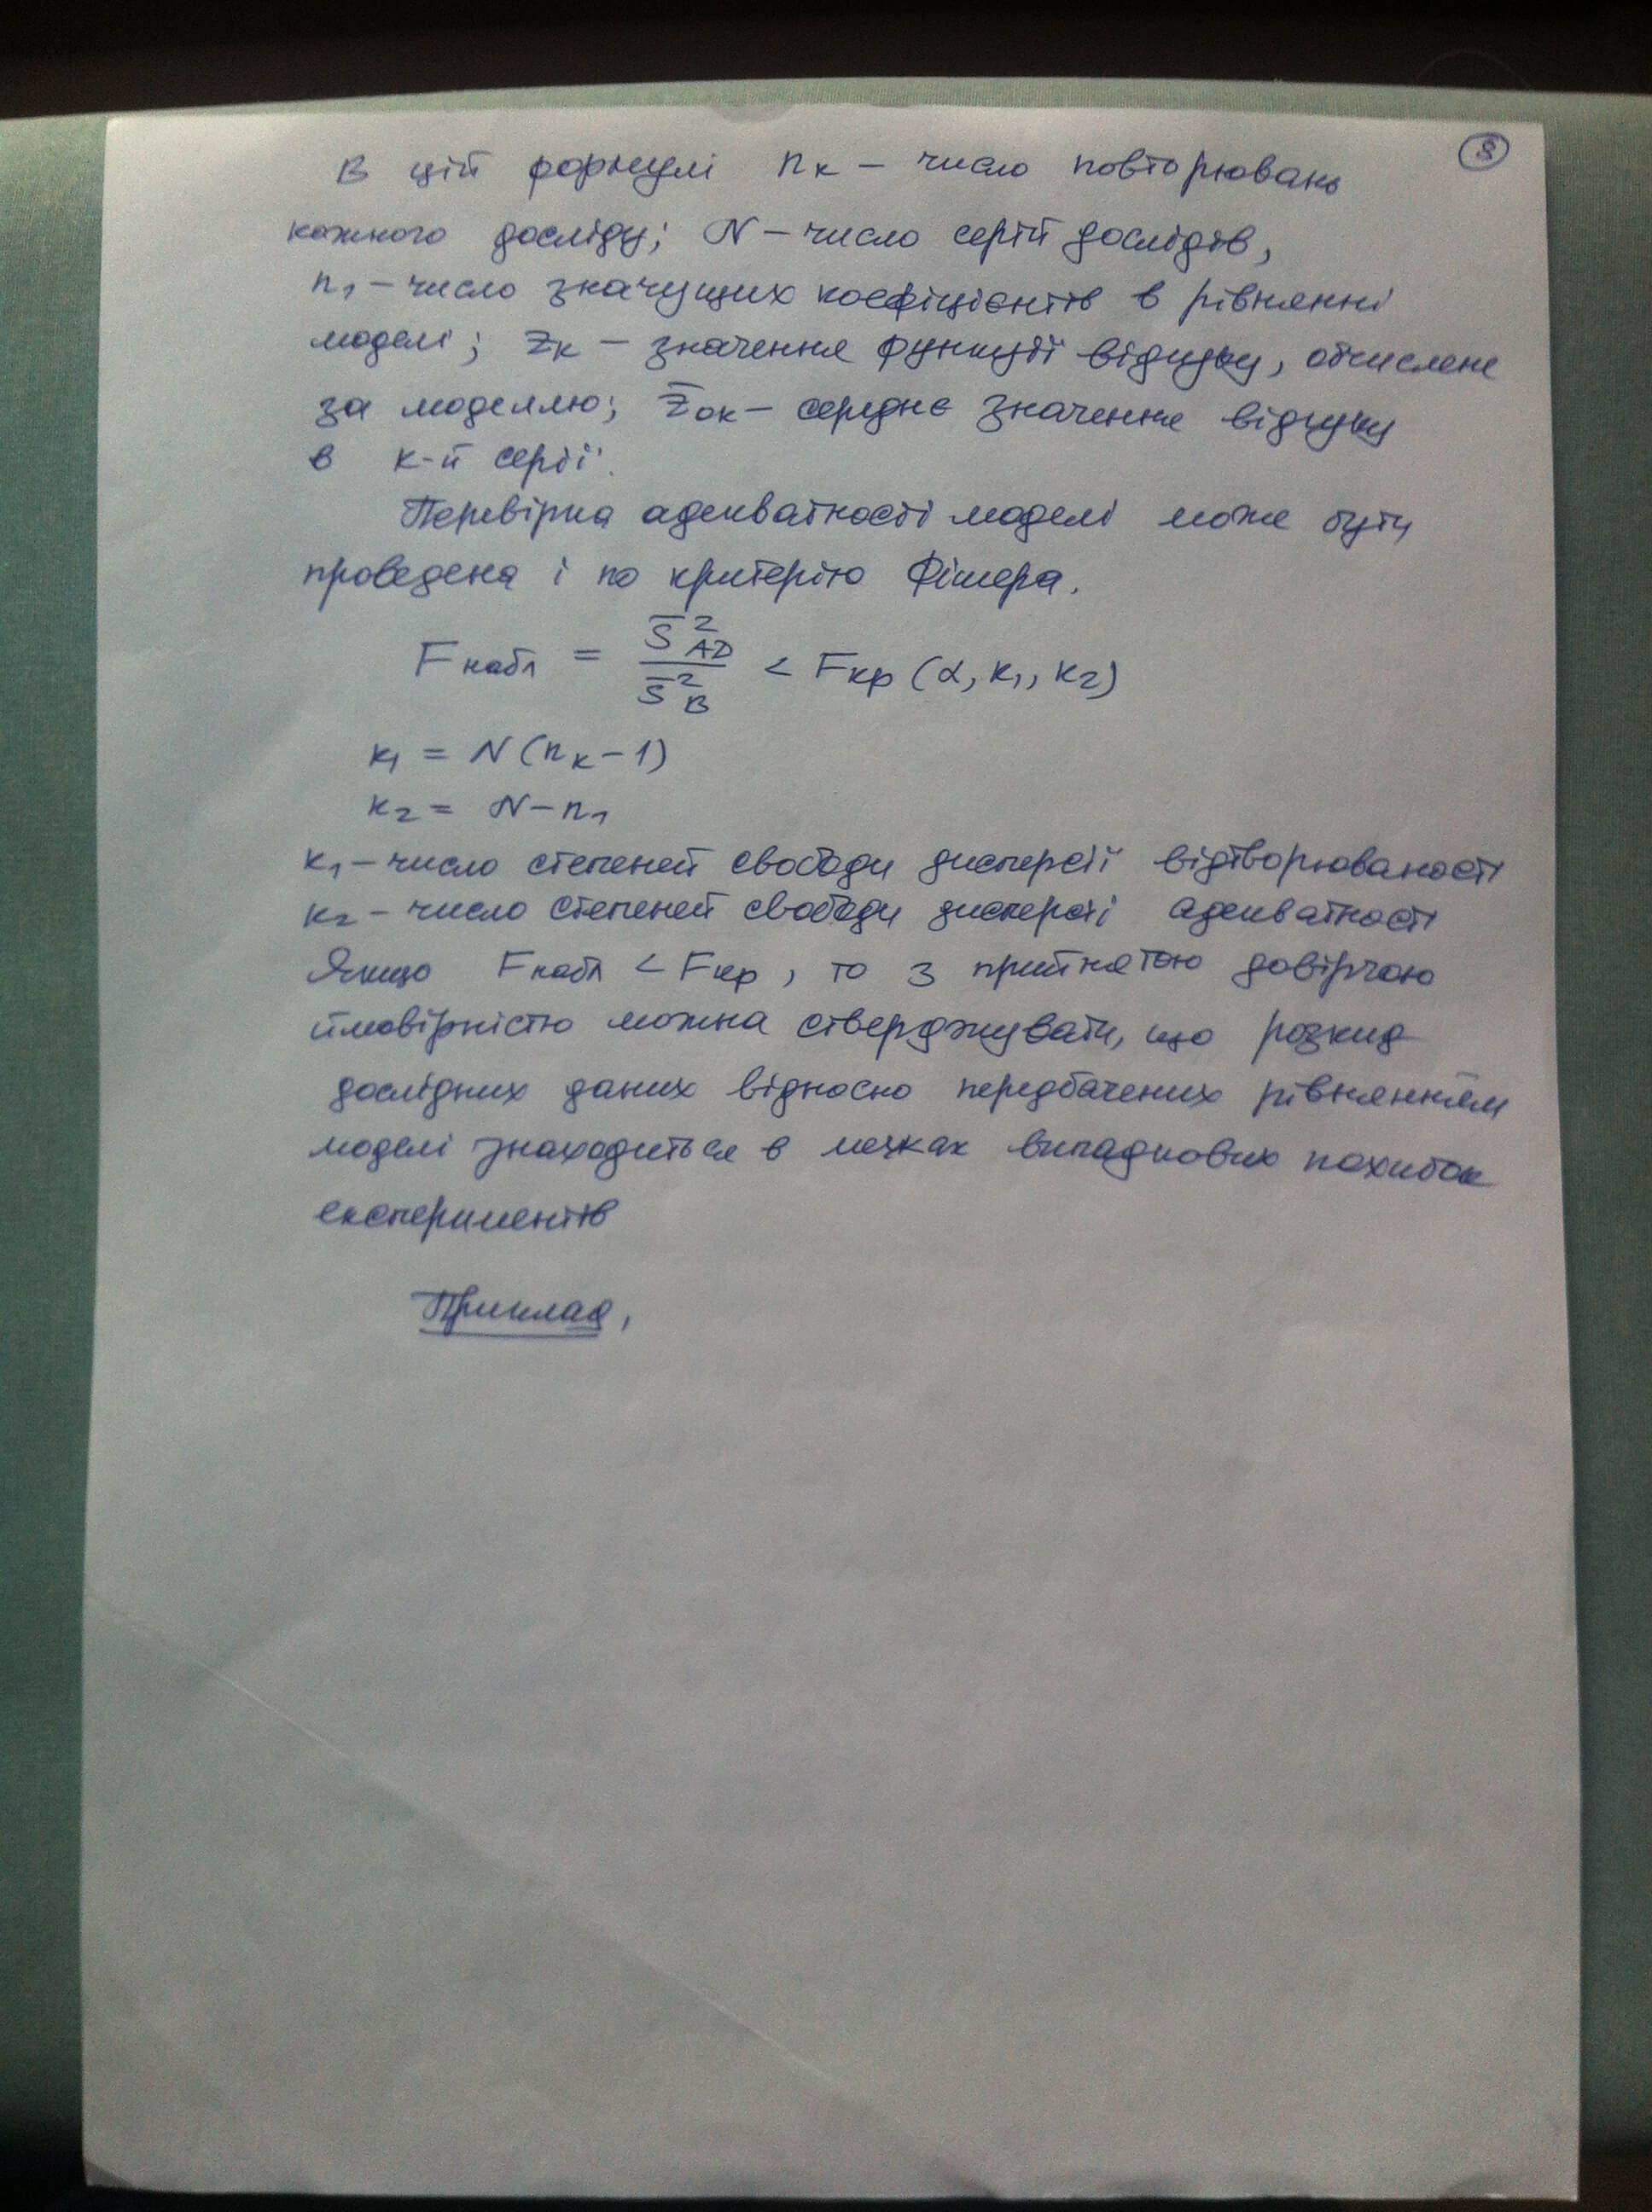 8
В цій формулі nк – число повторювань
кожного досліду; N – число серій дослідів,
n1 – число значущих коефіцієнтів в рівнянні
моделі; Zк – значення функції відгуку, обчислене
за моделлю; Z̄ок – середнє значення відгуку
в к-й серії.
Перевірка адекватності моделі може бути
проведена і по критерію Фішера.
Fнабл = S̄²AD / S̄²B < Fкр (α, к1, к2)
к1 = N(nк – 1)
к2 = N – n1
к1 – число степеней свободи дисперсії відтворюваності
к2 – число степеней свободи дисперсії адекватності
Якщо Fнабл < Fкр, то з прийнятою довірчою
ймовірністю можна стверджувати, що розкид
дослідних даних відносно передбачених рівнянням
моделі знаходиться в межах випадкових похибок
експериментів
Приклад,